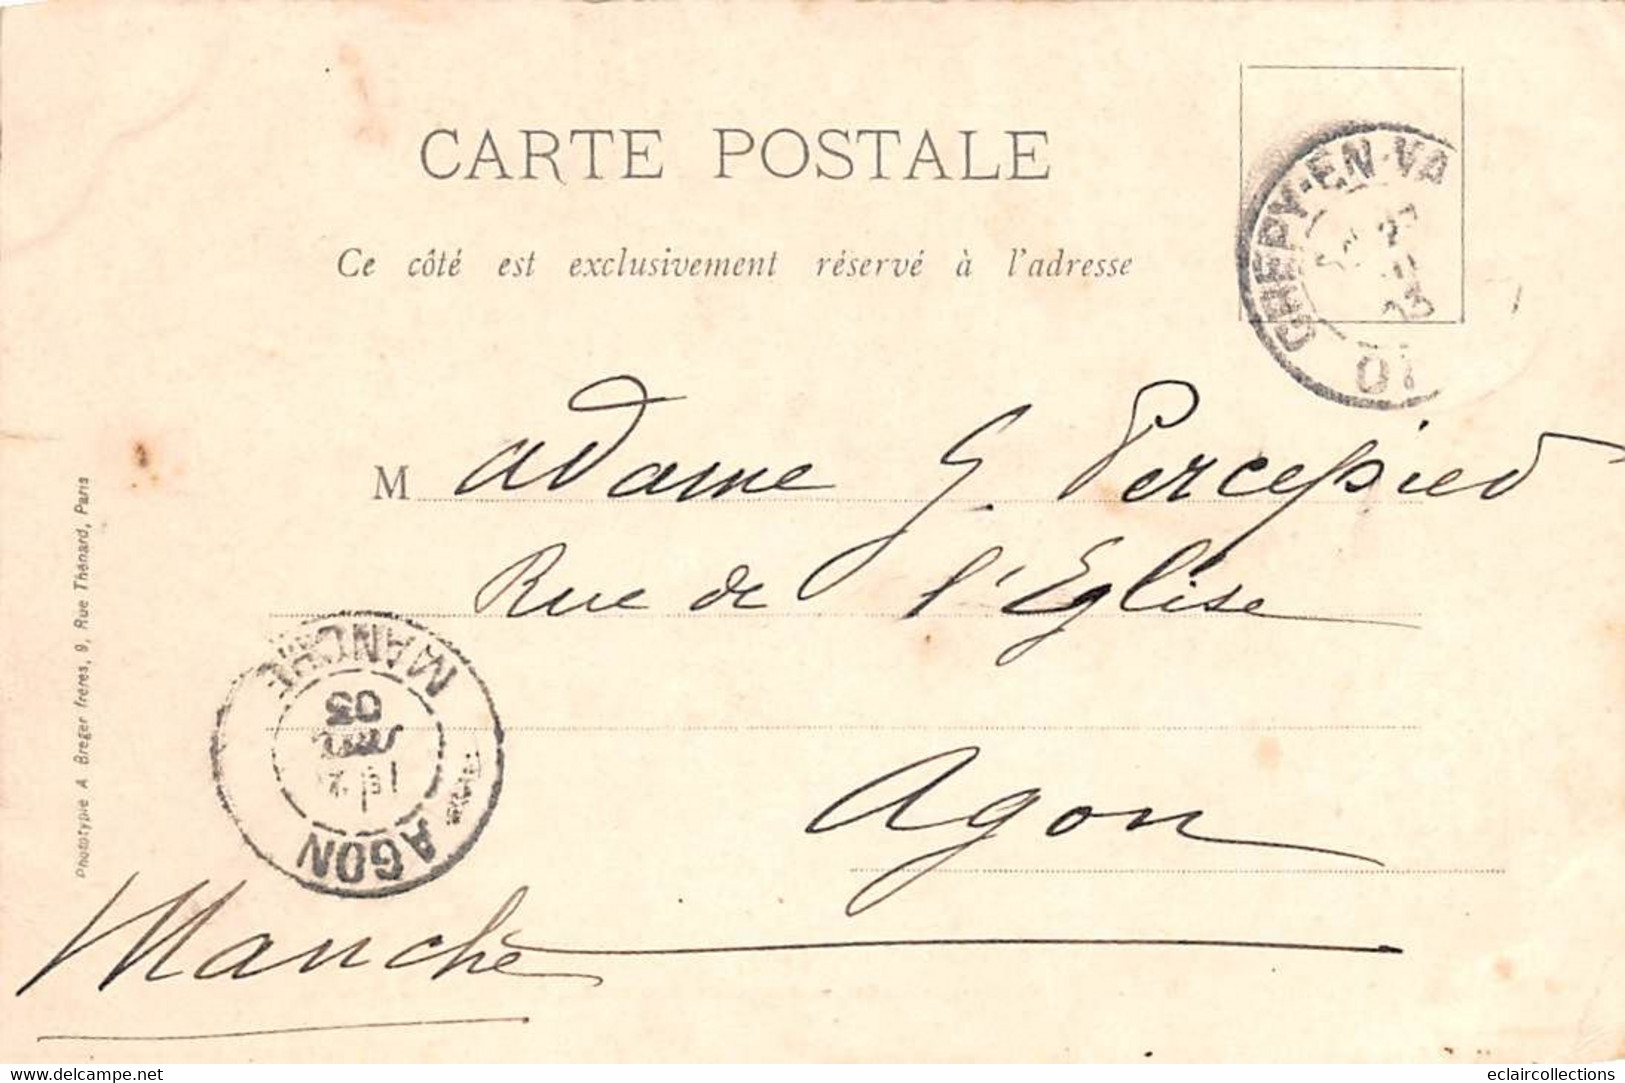 CARTE POSTALE
Ce côté est exclusivement réservé à l'adresse
CREPY-EN-VA
27
03
OI
Madame G. Percepied
Rue de l'Eglise
Agon
Manche
AGON
MANCHE
03
Phototype A Breger frères, 9, Rue Thénard, Paris
www.delcampe.net
eclaircollections